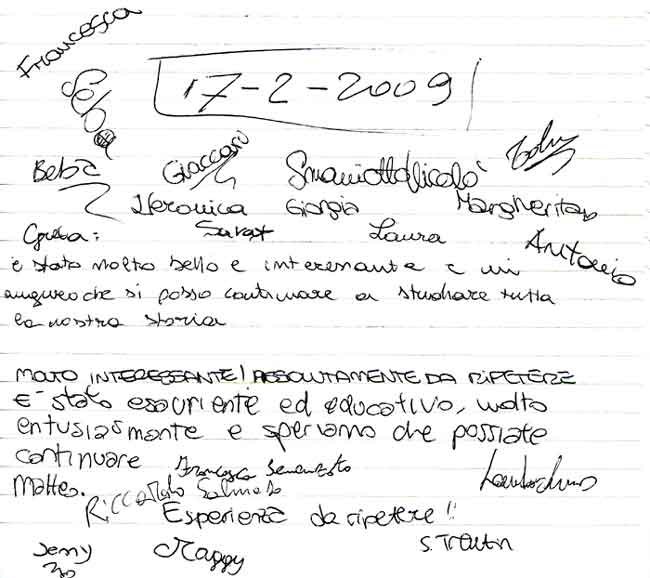 Francesca
Seba
17-2-2009
Giaccari
Smaniotto Nicolò
Veronica Giorgia Margherita
Sarat Laura Antonio
è stato molto bello e interessante e mi
auguro che si posso continuare a studiare tutta
la nostra storia
MOLTO INTERESSANTE! ASSOLUTAMENTE DA RIPETERE
E' stato esauriente ed educativo, molto
entusiasmante e speriamo che possiate
continuare Francesca
Matteo.
Riccardo Salmaso
Esperienza da ripetere!!
Jenny Maggy S. Trentin